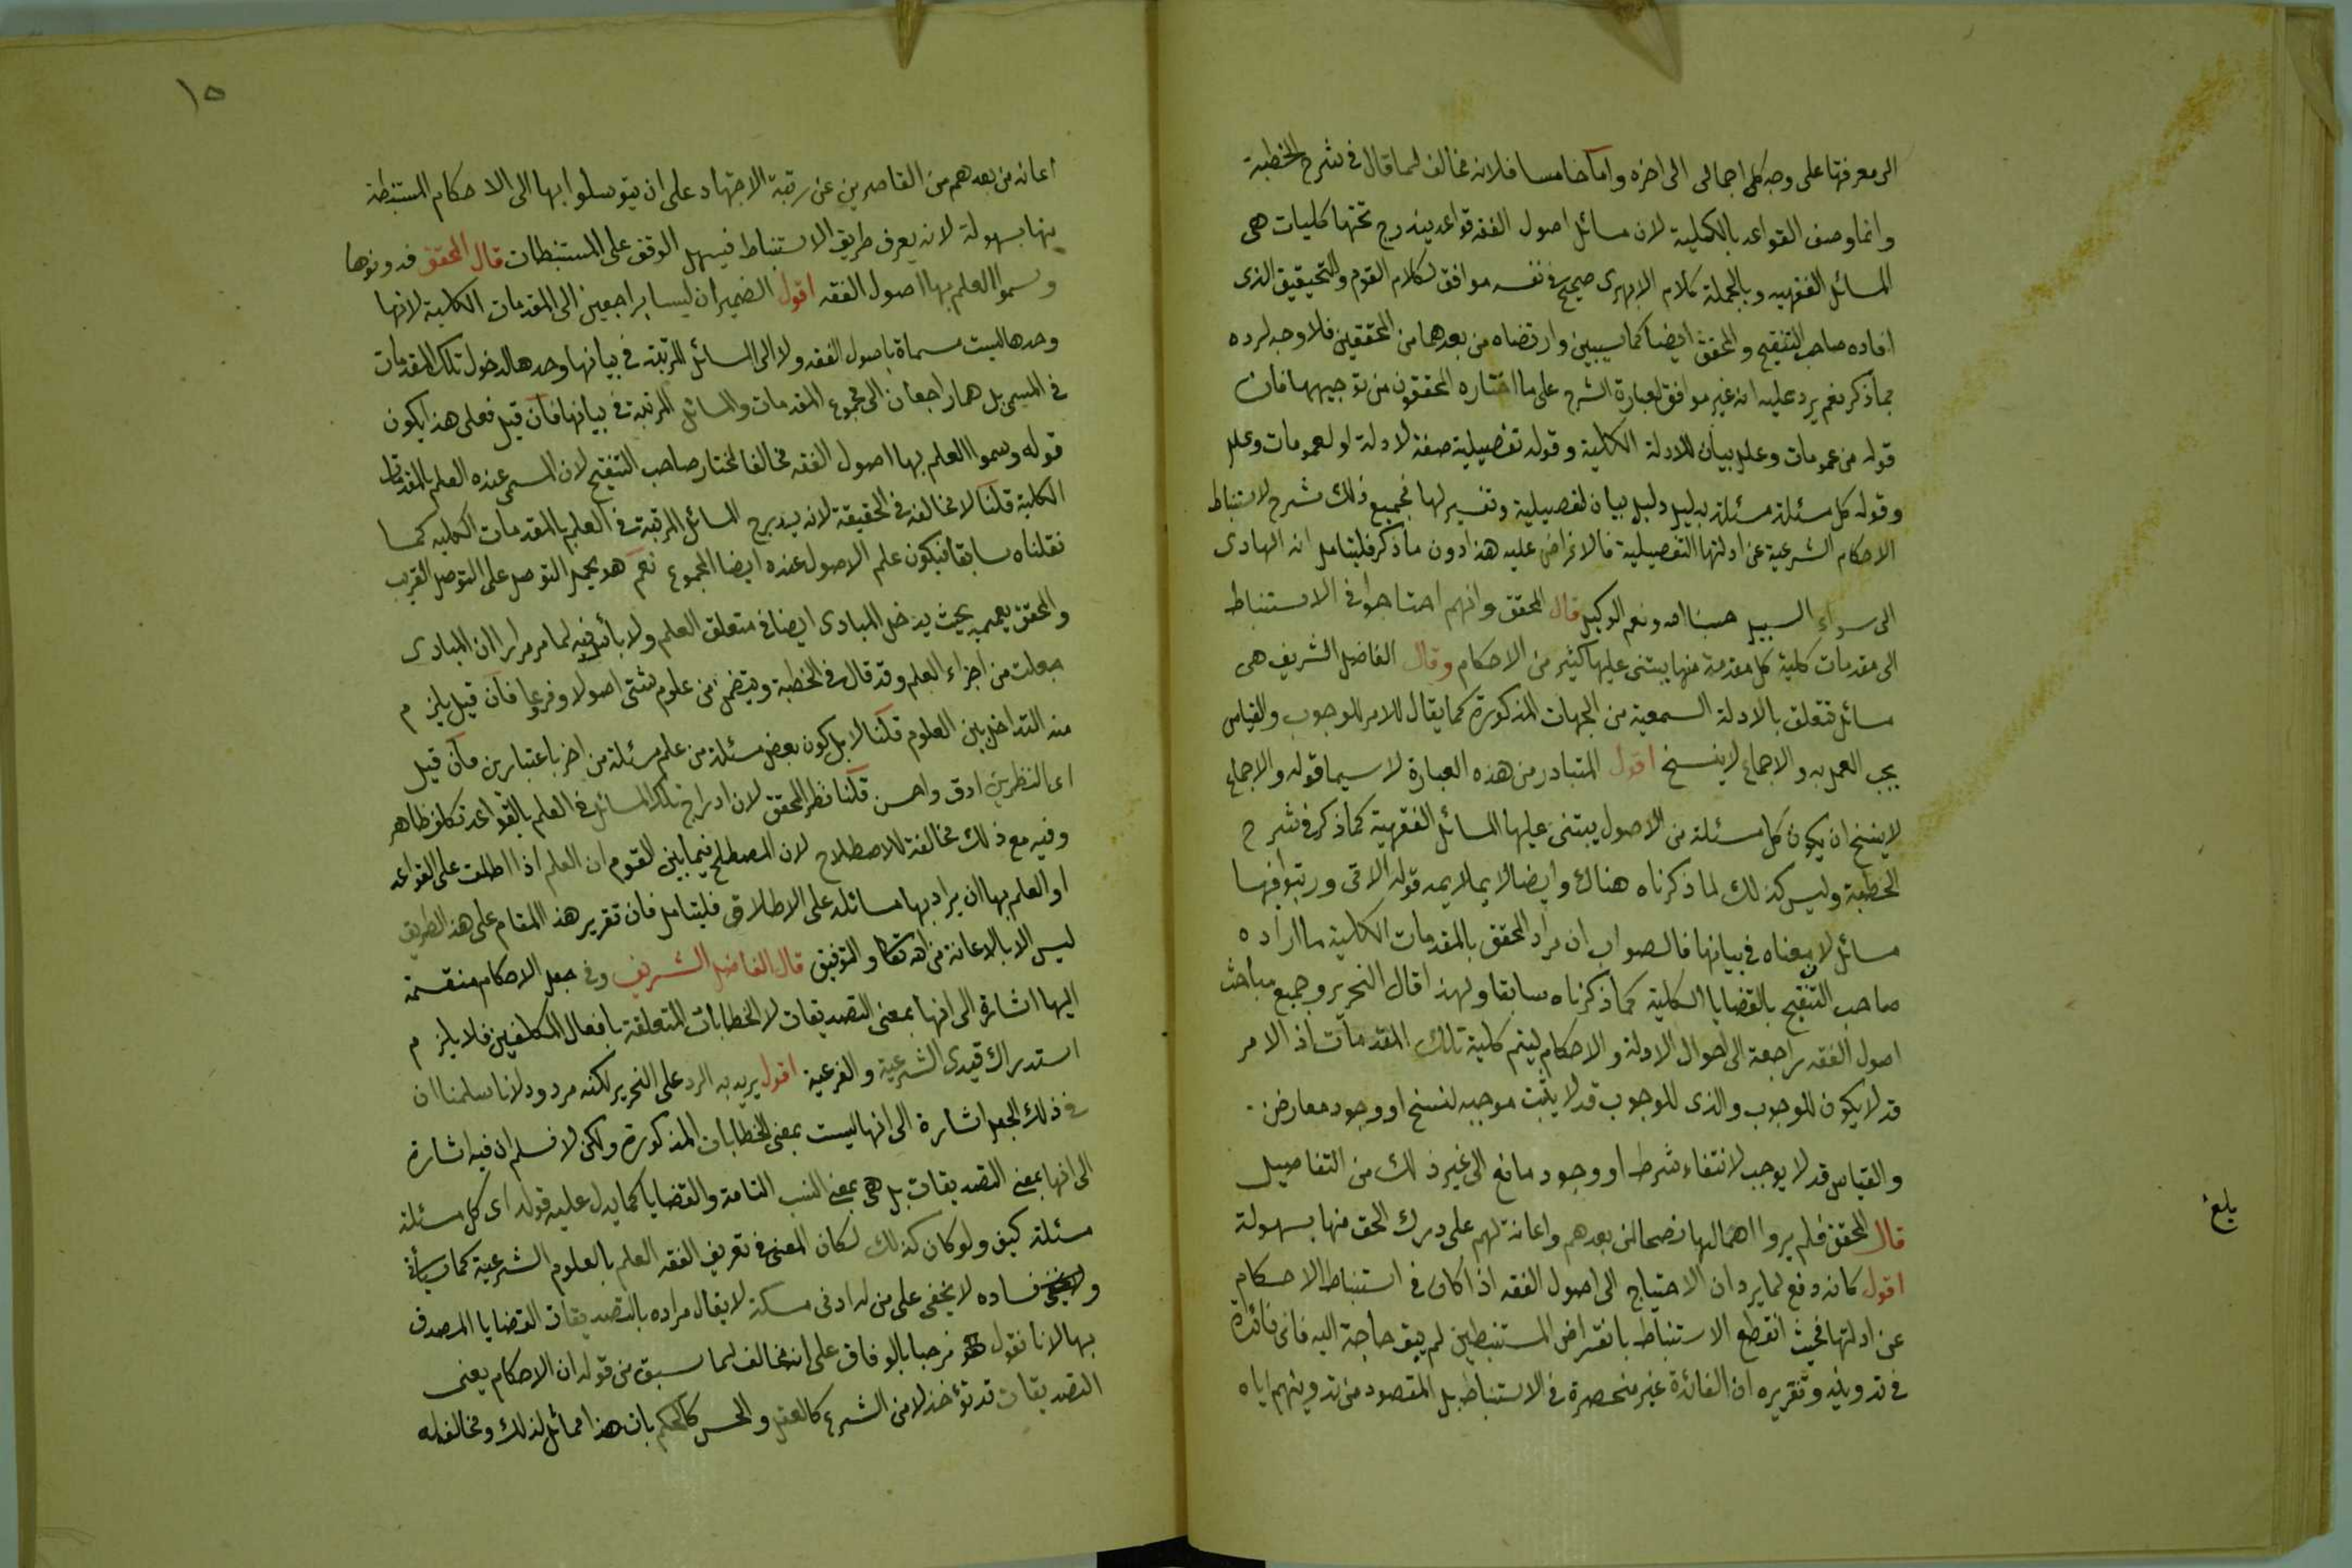 الى معرفتها على وجه كلى اجمالى الى اخره واما خامسا فلانه مخالف لما قال فى شرح الخطبة
وانما وصف القواعد بالكلية لان مسائل اصول الفقه قواعد يندرج تحتها كليات هى
المسائل الفقهيه وبالجملة كلام الابهرى صحيح فى نفسه موافق لكلام القوم والتحقيق الذى
افاده صاحب التنقيح والمحقق ايضا كما سيبين وارتضاه من بعدهما من المحققين فلا وجه لرده
بما ذكر نعم يرد عليه انه غير موافق لعبارة الشرح على ما اختاره المحققون من توجيهها فان
قوله من عمومات وعلل بيان للادلة الكلية وقوله تفصيلية صفة لادلة او لعمومات وعلل
وقوله كل مسئلة مسئلة بدليل دليل بيان لتفصيلية وتفسير لها فجميع ذلك شرح لاستنباط
الاحكام الشرعية عن ادلتها التفصيلية فالاعراض عليه هذا دون ما ذكر فليتامل انه الهادى
الى سواء السبيل حسبنا الله ونعم الوكيل قال المحقق وانهم احتاجوا فى الاستنباط
الى مقدمات كلية كل مقدمة منها يبتنى عليها كثير من الاحكام وقال الفاضل الشريف هى
مسائل تتعلق بالادلة السمعية من الجهات المذكورة كما يقال الامر للوجوب والقياس
يجب العمل به والاجماع لاينسخ اقول المتبادر من هذه العبارة لا سيما قوله والاجماع
لاينسخ ان يكون كل مسئلة من الاصول يبتنى عليها المسائل الفقهية كما ذكر فى شرح
الخطبة وليس كذلك لما ذكرناه هناك وايضا لا يلايمه قوله الاتى ورتبوا فيها
مسائل لان معناه فى بيانها فالصواب ان مراد المحقق بالمقدمات الكلية ما اراده
صاحب التنقيح بالقضايا الكلية كما ذكرناه سابقا ولهذا قال النحرير وجميع مباحث
اصول الفقه راجعة الى احوال الادلة والاحكام ليتم كلية تلك المقدمات اذ الامر
قد لا يكون للوجوب والذى للوجوب قد لا يثبت موجبه لنسخ او وجود معارض
والقياس قد لا يوجب لانتفاء شرط او وجود مانع الى غير ذلك من التفاصيل
قال المحقق فلم يروا اهمالها نصحا لمن بعدهم واعانة لهم على درك الحق منها بسهولة
اقول كانه دفع لما يرد ان الاحتياج الى اصول الفقه اذا كان فى استنباط الاحكام
عن ادلتها فحيث انقطع الاستنباط بانقراض المستنبطين لم يبق حاجة اليه فاى فائدة
فى تدوينه وتقريره ان الفائدة غير منحصرة فى الاستنباط بل المقصود من تدوينهم اياه
بلغ
١٥
اعانة من بعدهم من القاصرين عن رتبة الاجتهاد على ان يتوسلوا بها الى الاحكام المستنبطة
منها بسهولة لانه يعرف طريق الاستنباط فيسهل الوقف على المستنبطات قال المحقق فدونوها
وسموا العلم بها اصول الفقه اقول الضميران ليسا براجعين الى المقدمات الكلية لانها
وحدها ليست مسماة باصول الفقه ولا الى المسائل المرتبة فى بيانها وحدها لدخول تلك المقدمات
فى المسمى بل هما راجعان الى مجموع المقدمات والمسائل المرتبة فى بيانها فان قيل فعلى هذا يكون
قوله وسموا العلم بها اصول الفقه مخالفا لمختار صاحب التنقيح لان المسمى عنده العلم بالمقدمات
الكلية قلنا لا مخالفة فى الحقيقة لانه يندرج المسائل المرتبة فى العلم بالمقدمات الكليه كما
نقلناه سابقا فيكون علم الاصول عنده ايضا المجموع نعم هو يحمل التوصل على التوصل القريب
والمحقق يعممه بحيث يدخل المبادى ايضا فى متعلق العلم ولا بأس فيه لما مر مرارا ان المبادى
جعلت من اجزاء العلم وقد قال فى الخطبة ويتضمن من علوم شتى اصولا وفروعا فان قيل يلزم
منه التداخل بين العلوم قلنا لا بل كون بعض مسئلة من علم مسئلة من اخر باعتبارين فان قيل
اى النظرين ادق واحسن قلنا نظر المحقق لان ادراج تلك المسائل فى العلم بالقواعد تكلف ظاهر
وفيه مع ذلك مخالفة للاصطلاح لان المصطلح فيما بين القوم ان العلم اذا اطلقت على القواعد
او العلم بها ان يراد بها مسائله على الاطلاق فليتامل فان تقرير هذا المقام على هذا الطريق
ليس الا بالاعانة من الله تعالى والتوفيق قال الفاضل الشريف وفى جعل الاحكام منقسمة
اليها اشارة الى انها بمعنى التصديقات لا الخطابات المتعلقة بافعال المكلفين فلا يلزم
استدراك قيدى الشرعية والفرعية اقول يريد به الرد على النحرير لكنه مردود لانا سلمنا ان
فى ذلك الجعل اشارة الى انها ليست بمعنى الخطابات المذكورة ولكن لا نسلم ان فيه اشارة
الى انها بمعنى التصديقات بل هى بمعنى النسب التامة والقضايا كما يدل عليه قوله اى كل مسئلة
مسئلة كيف ولو كان كذلك لكان المعنى فى تعريف الفقه العلم بالعلوم الشرعية كما سيأتى
وفساده لا يخفى على من له ادنى مسكة لا يقال مراده بالتصديقات القضايا المصدق
بها لانا نقول مرحبا بالوفاق على انه مخالف لما سبق من قوله ان الاحكام يعنى
التصديقات قد تؤخذ لا من الشرع كالعقل والحس كالحكم بان هذا مماثل لذلك ومخالف له